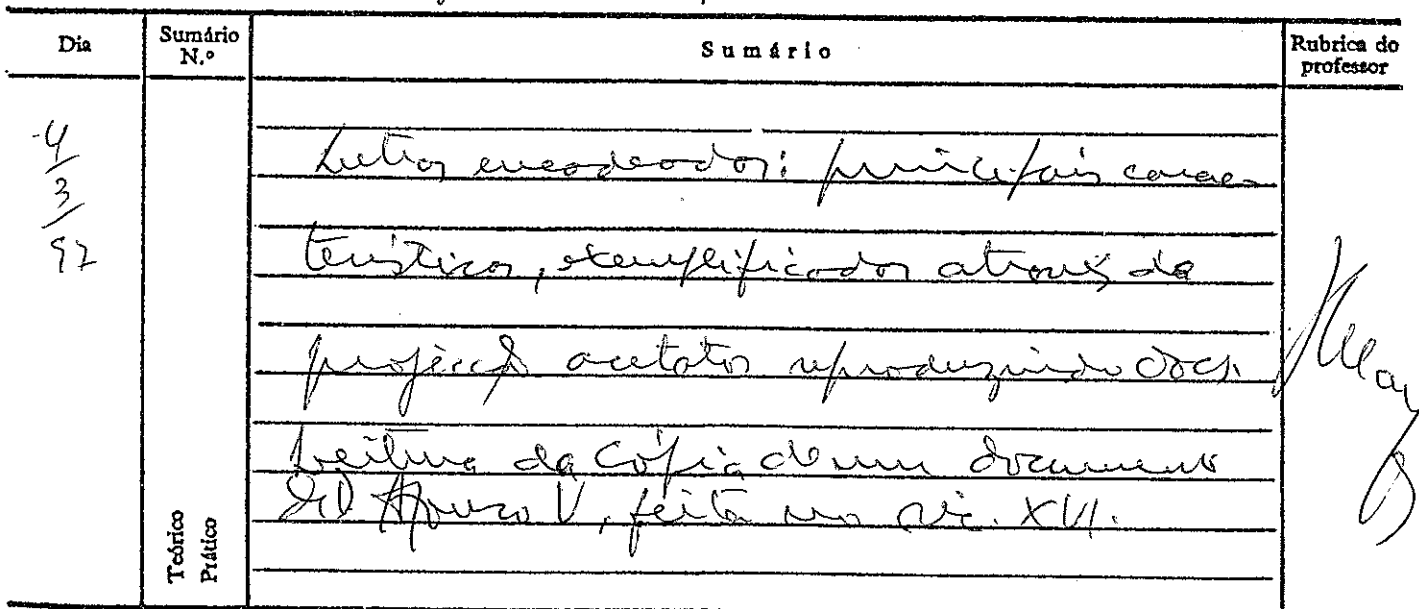 Dia
Sumário N.º
Sumário
Rubrica do professor
4/3/97
Letras encadeadas: principais carac-
terísticas, exemplificadas através da
projecção acetatos reproduzindo docs.
Leitura da cópia de um documento
de D. Afonso V, feita no séc. XVI.
Teórico
Prático